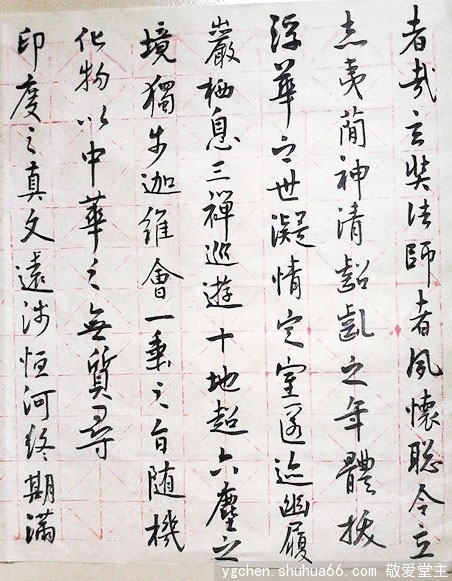 者哉玄奘法師者夙懷聡令立
志夷蕳神清齠齔之年體拔
浮華之世凝情定室匿迹幽履
巖栖息三禪巡遊十地超六塵之
境獨步迦維會一乗之旨随機
化物以中華之無質尋
印度之真文遠涉恒河終期滿
ygchen.shuhua66.com 敬爱堂主